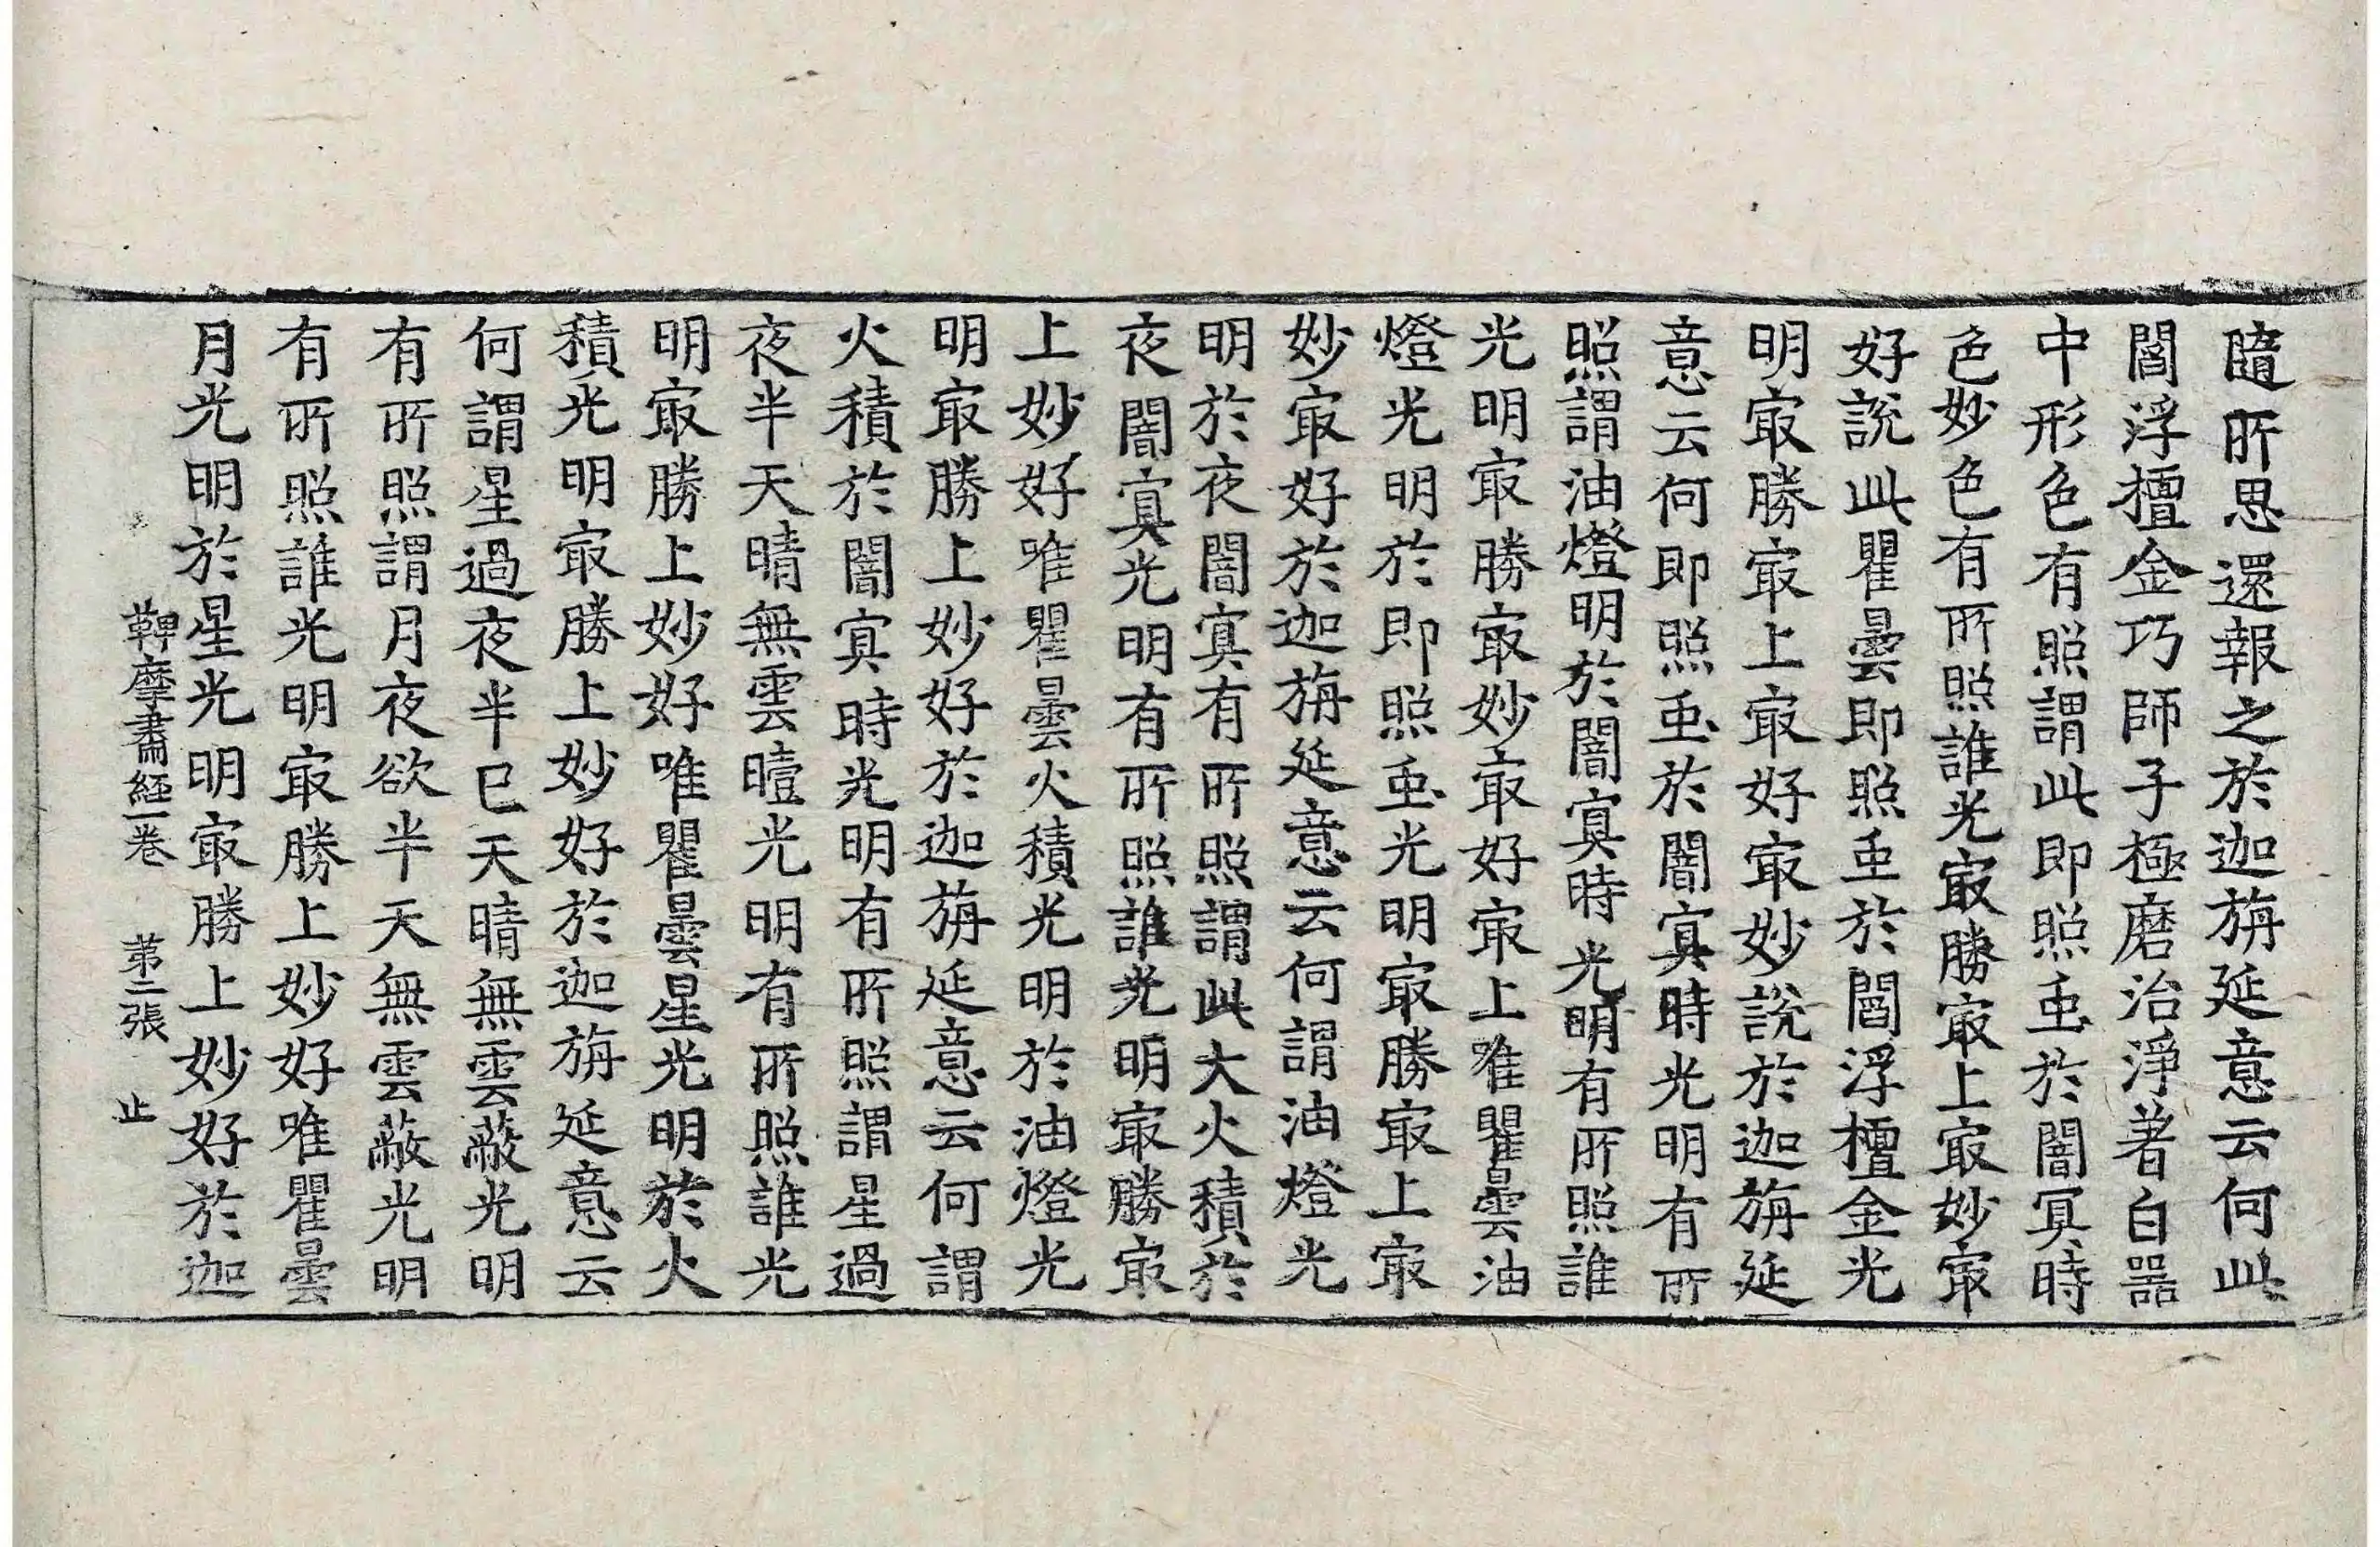 隨所思還報之於迦旃延意云何此
閻浮檀金巧師子極磨治淨著白器
中形色有照謂此即照虫於闇冥時
色妙色有所照誰光㝡勝㝡上㝡妙㝡
好說此瞿曇即照虫於閻浮檀金光
明㝡勝㝡上㝡好㝡妙說於迦旃延
意云何即照虫於闇冥時光明有所
照謂油燈明於闇冥時光明有所照誰
光明㝡勝㝡妙最好㝡上唯瞿曇油
燈光明於即照虫光明㝡勝㝡上㝡
妙㝡好於迦旃延意云何謂油燈光
明於夜闇冥有所照謂此大火積於
夜闇冥光明有所照誰光明㝡勝㝡
上妙好唯瞿曇火積光明於油燈光
明㝡勝上妙好於迦旃延意云何謂
火積於闇冥時光明有所照謂星過
夜半天晴無雲曀光明有所照誰光
明㝡勝上妙好唯瞿曇星光明於火
積光明㝡勝上妙好於迦旃延意云
何謂星過夜半已天晴無雲蔽光明
有所照謂月夜欲半天無雲蔽光明
有所照誰光明㝡勝上妙好唯瞿曇
月光明於星光明㝡勝上妙好於迦
鞞摩肅經一卷 第二張 止